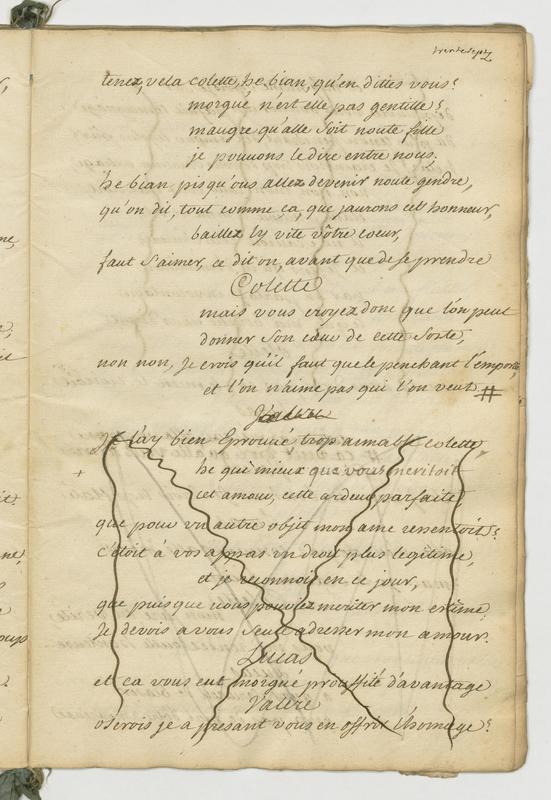 trente sept
tenez, vela colette, he bian, qu'en dittes vous?
morgué n'est elle pas gentille?
maugre qu'alle soit noute fille
je pouvons le dire entre nous.
he bian pisqu'ous allez devenir noute gendre,
qu'on dit, tout comme ça, que j'aurons cet honneur,
baillez ly vite vôtre coeur,
faut s'aimer, ce dit on, avant que de se prendre
Colette
mais vous croyez donc que l'on peut
donner son coeur de cette sorte,
non non, Je crois qu'il faut que le penchant l'emporte,
et l'on n'aime pas qui l'on veut #
Valere
Je l'ay bien Eprouvé trop aimable colette,
+ he qui mieux que vous meritoit
cet amour, cette ardeur parfaite
que pour un autre objet mon ame ressentoit?
c'étoit à vos appas un droit plus legitime,
et je reconnois en ce jour,
que puisque vous pouviez meriter mon estime,
Je devois a vous seule adresser mon amour.
Lucas
et ca vous eut morgué prouffité d'avantage
Valere
oserois je a present vous en offrir l'homage?